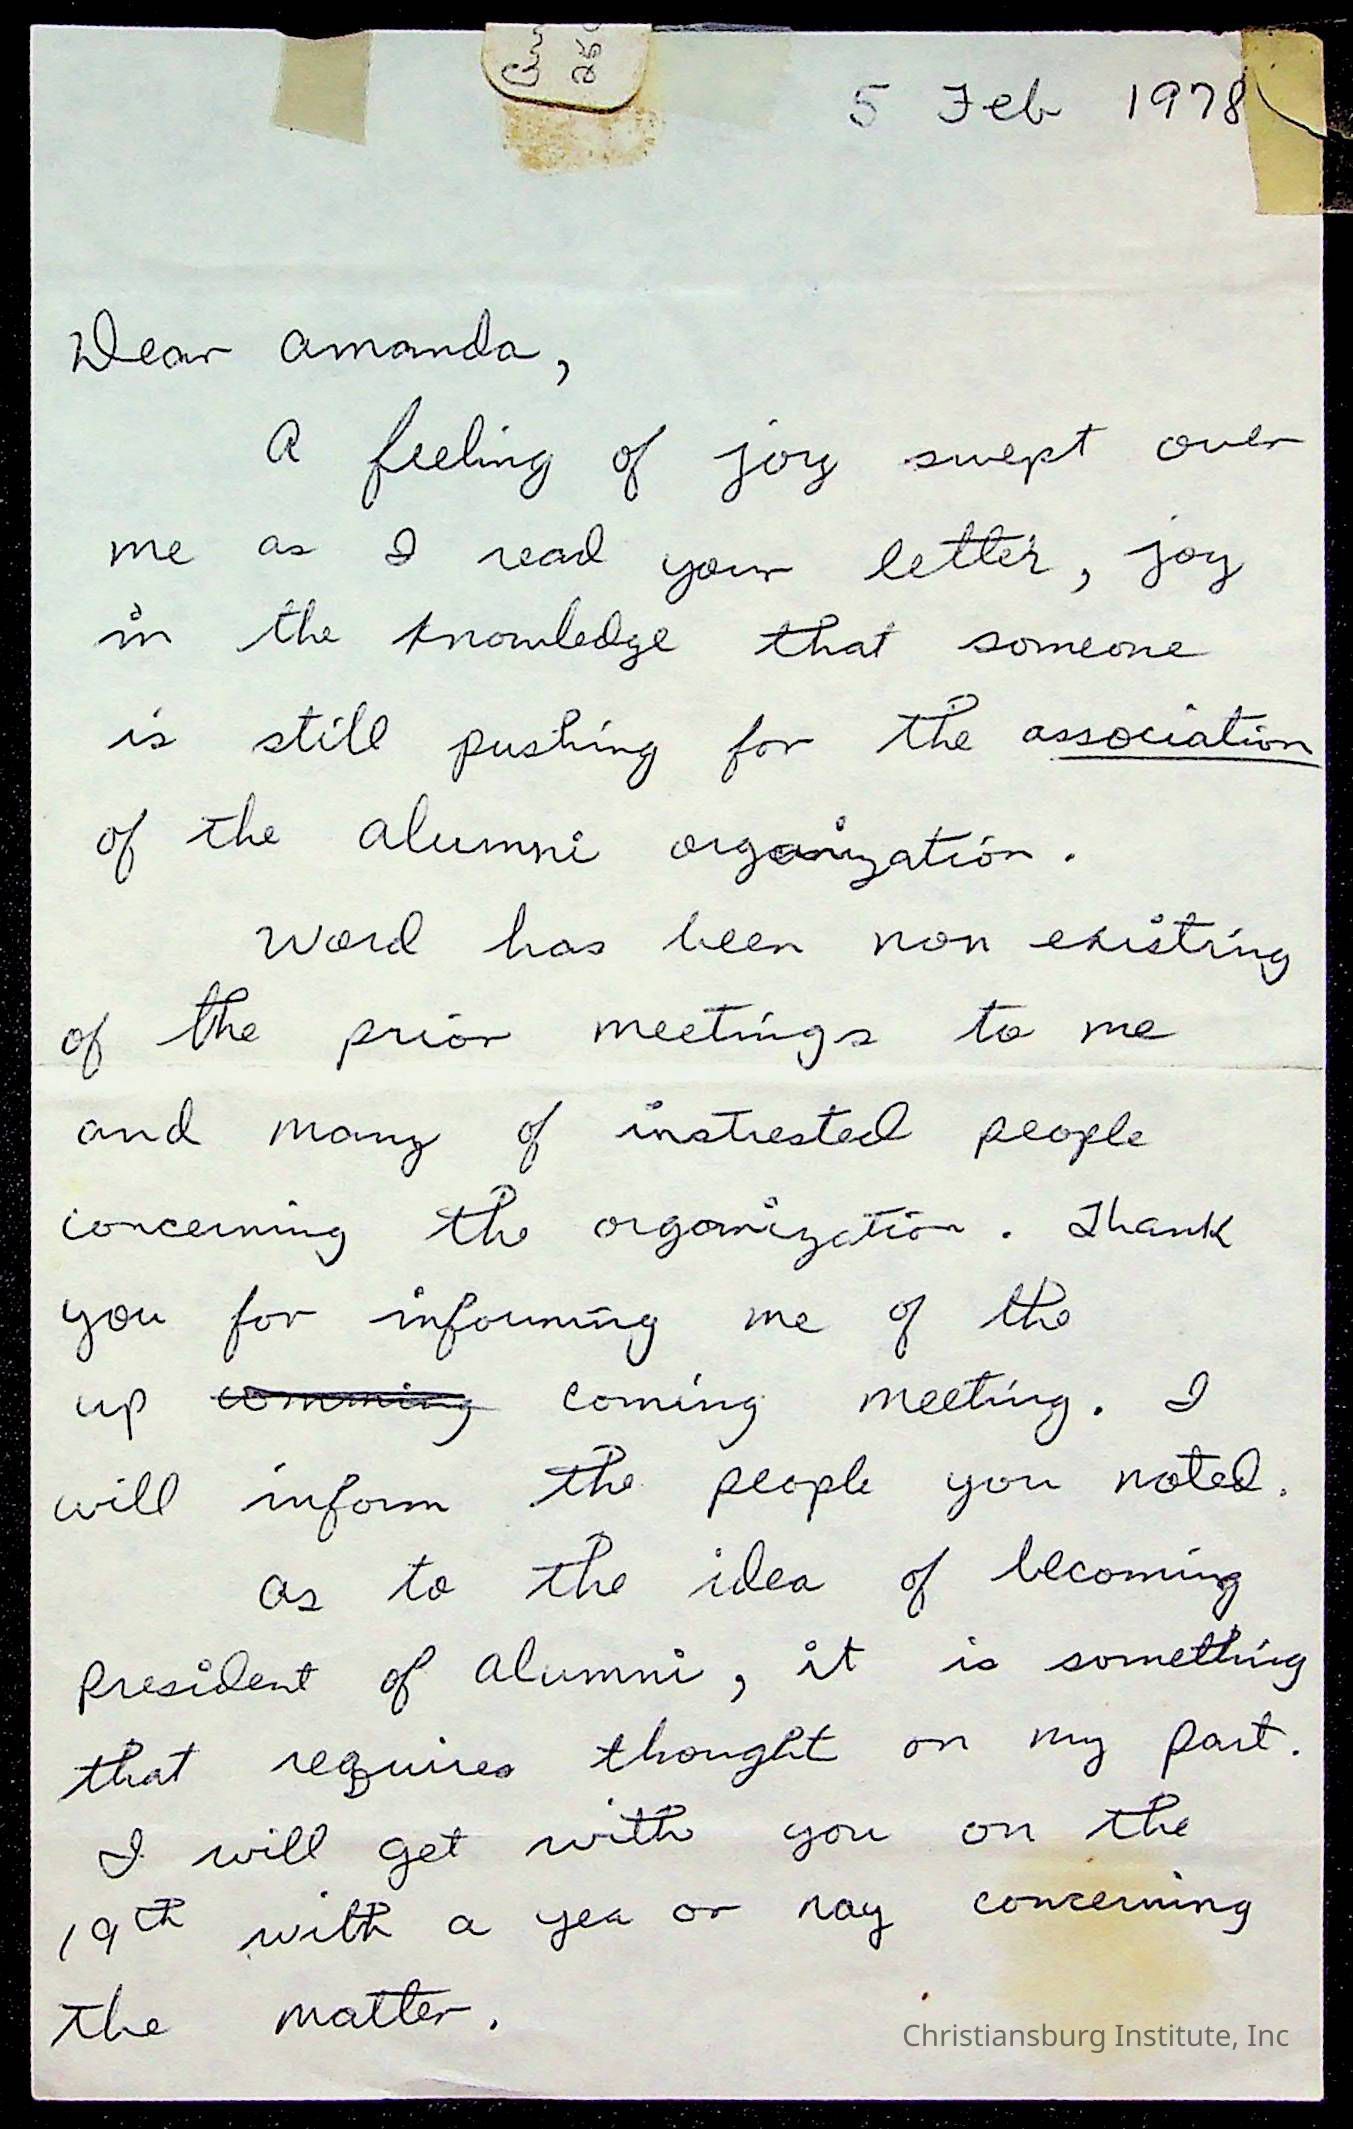 5 Feb 1978
Dear Amanda,
A feeling of joy swept over
me as I read your letter, joy
in the knowledge that someone
is still pushing for the association
of the alumni organization.
Word has been non existing
of the prior meetings to me
and many of instrested people
concerning the organization. Thank
you for informing me of the
up comming coming meeting. I
will inform the people you noted.
As to the idea of becoming
president of alumni, it is something
that requires thought on my part.
I will get with you on the
19th with a yea or nay concerning
the matter.
Christiansburg Institute, Inc